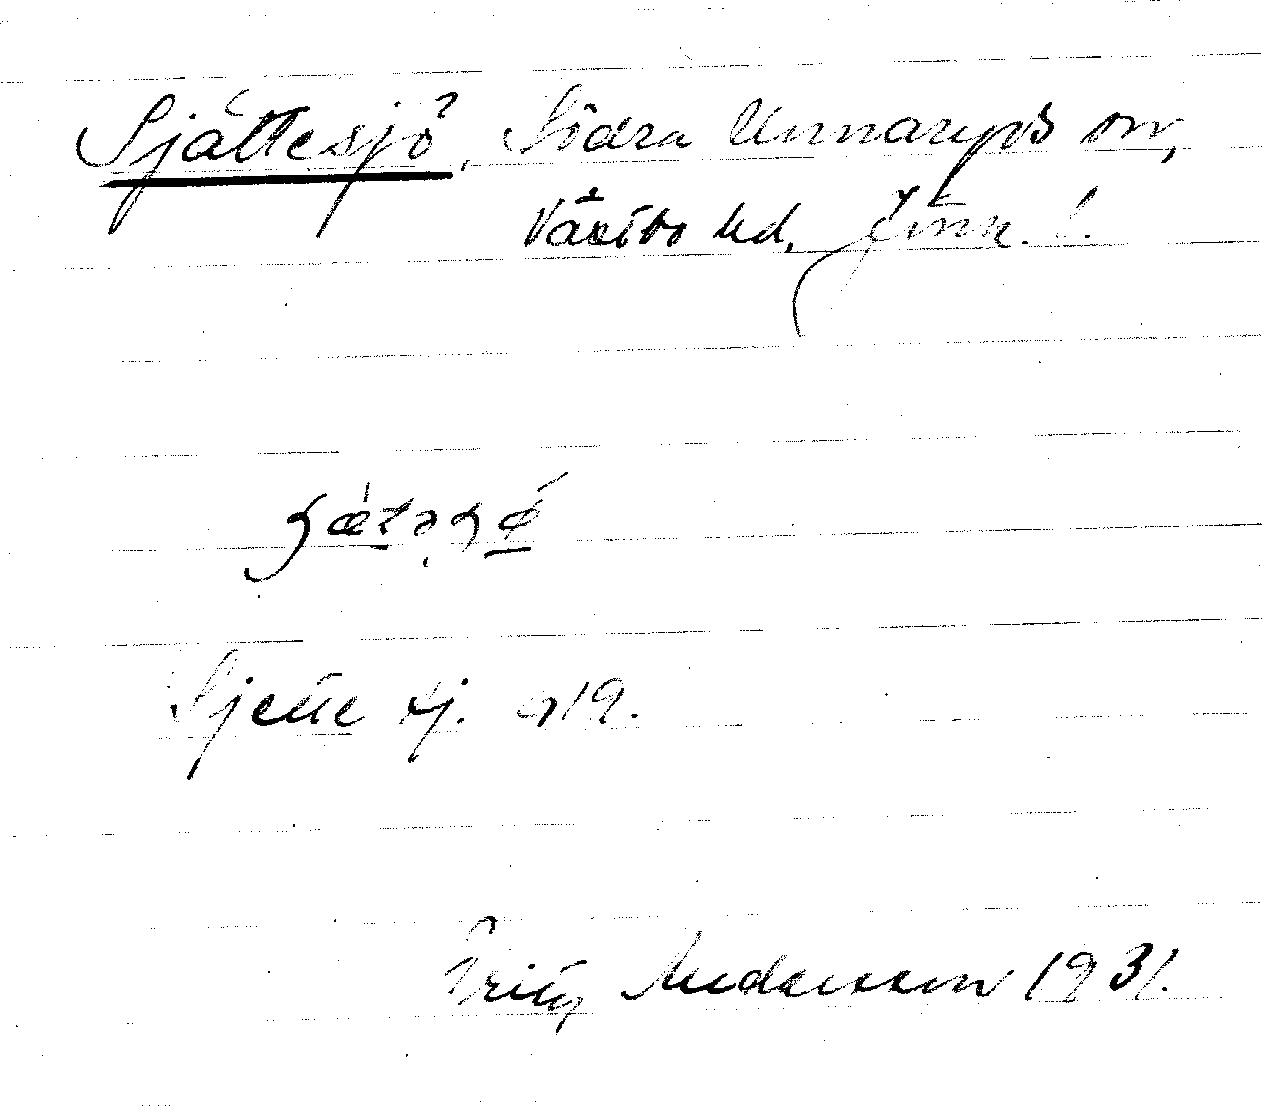 Sjättesjö, Södra Unnaryds sn,
Västbo hd, Jönk. l.
Sjette sj. 919.
Fritz Andersson 1931.